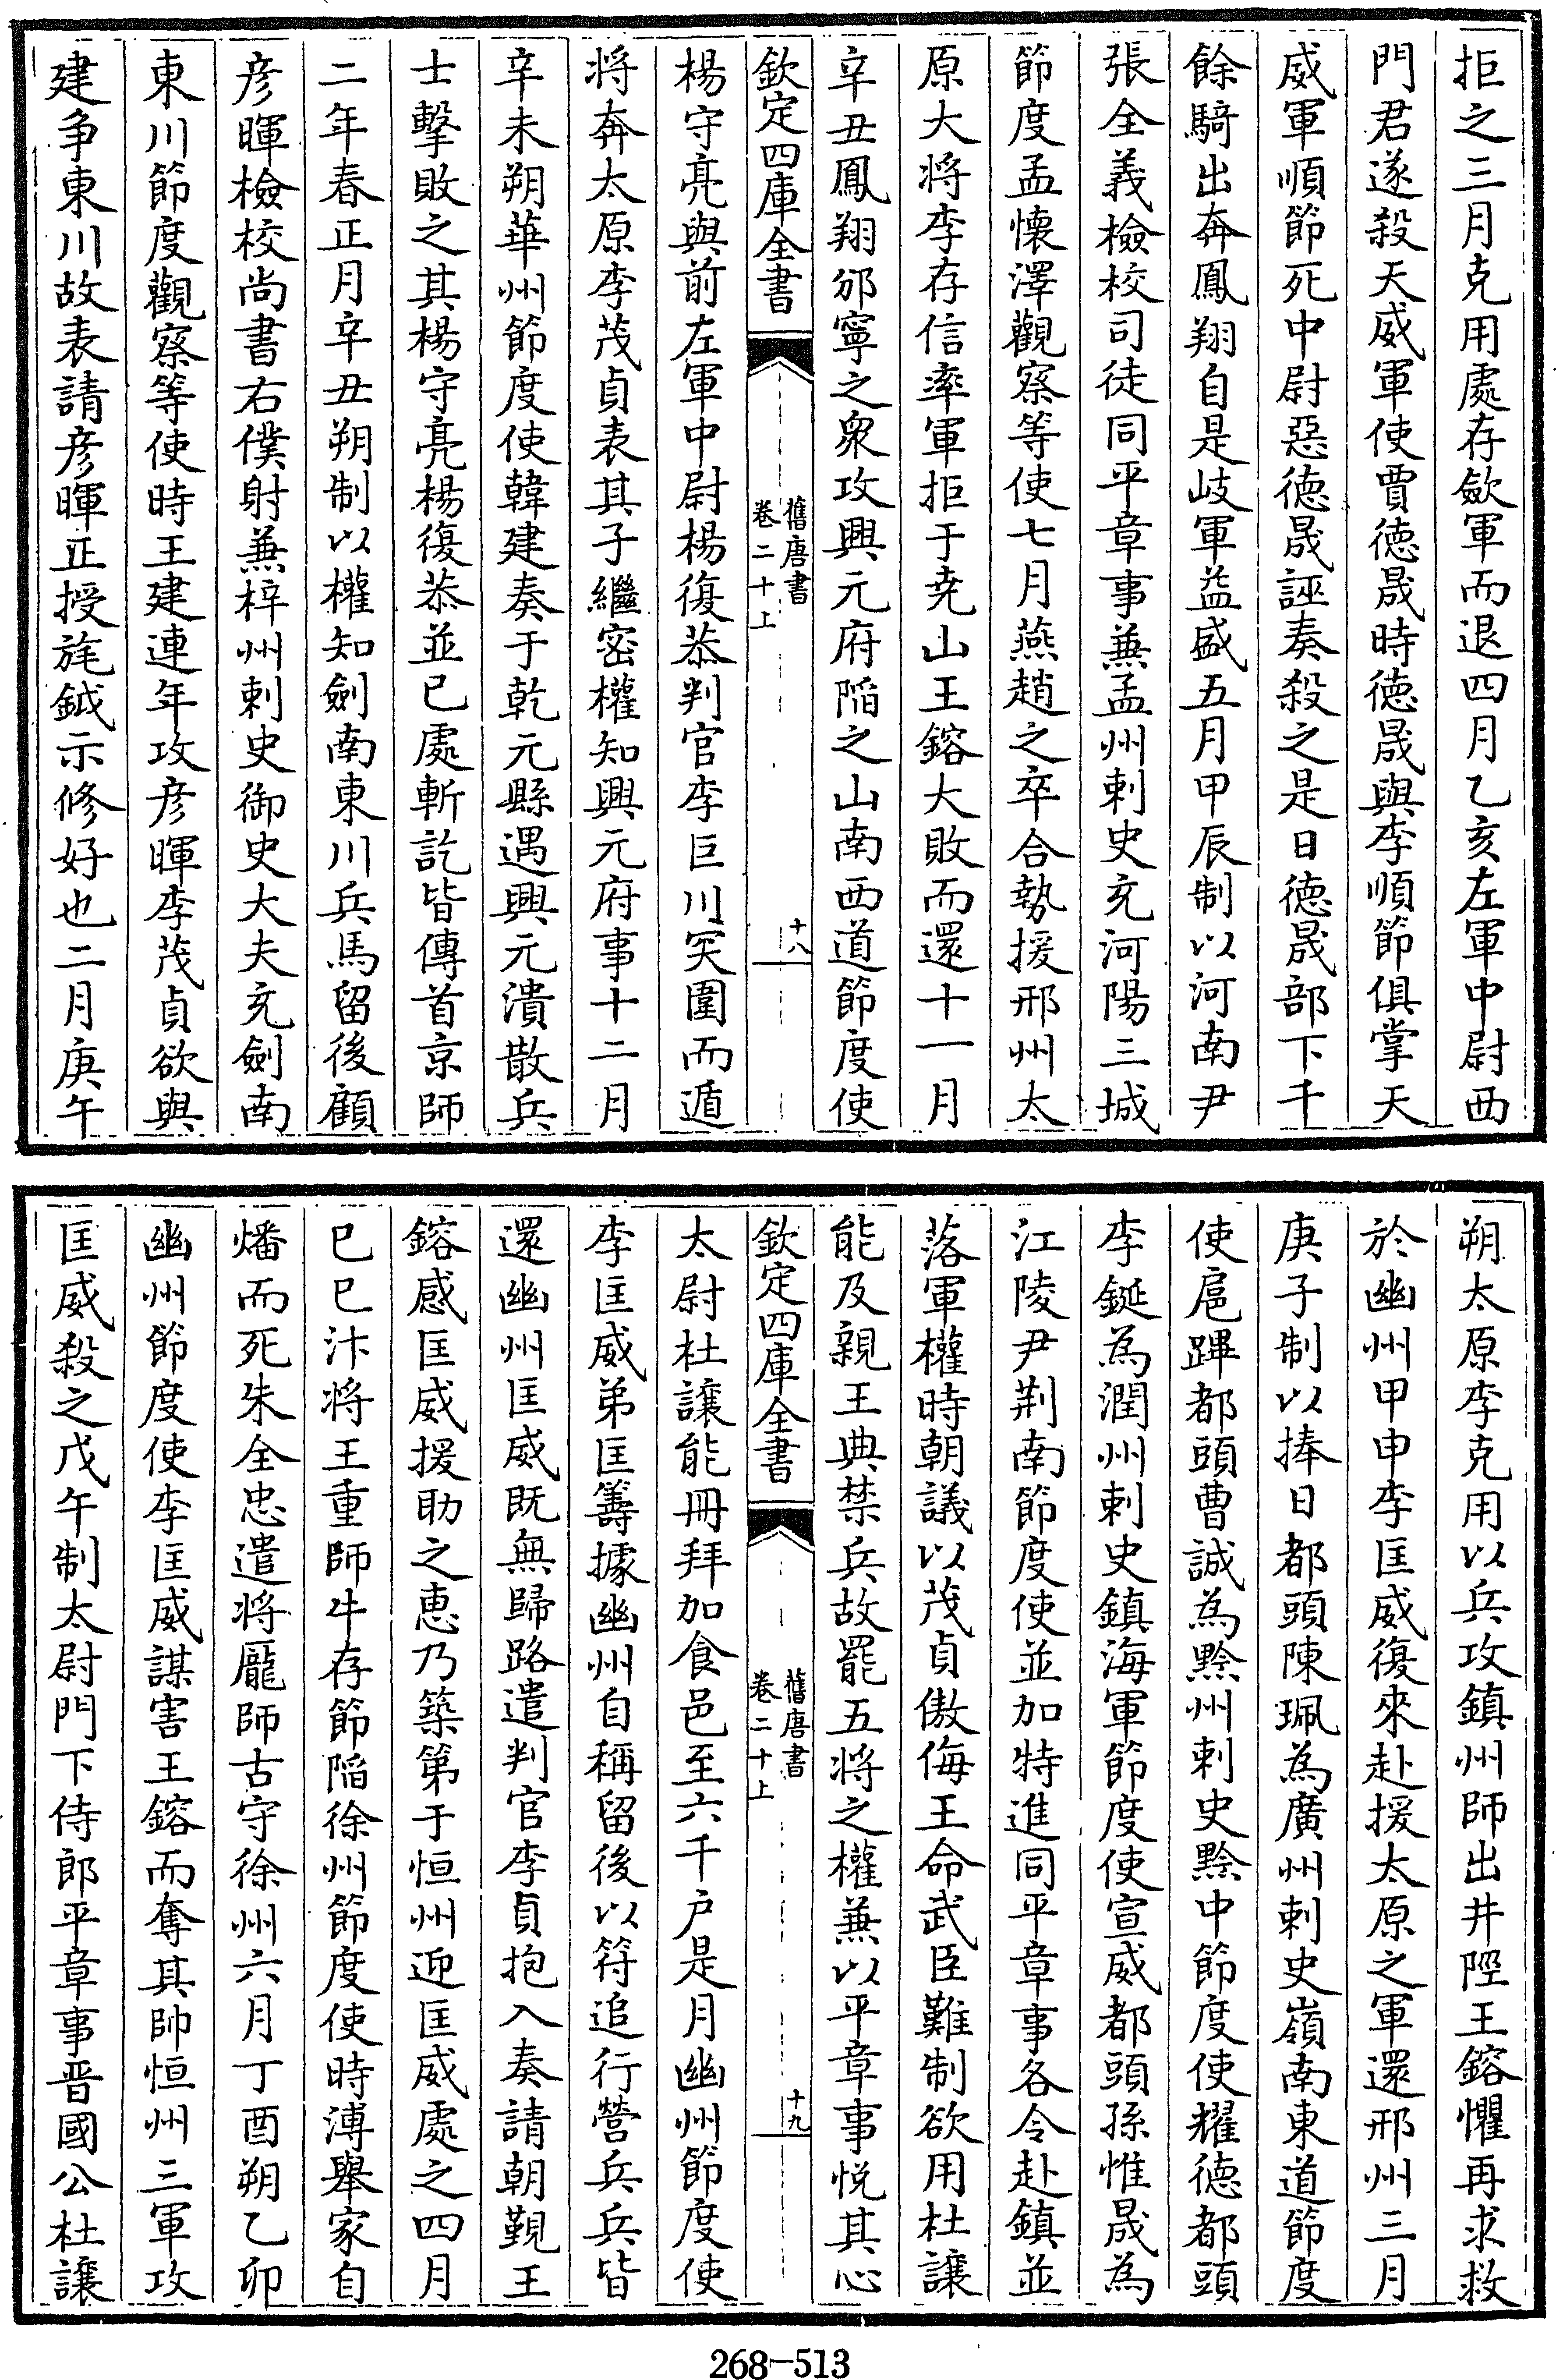 拒之三月克用處存歛軍而退四月乙亥左軍中尉西
門君遂殺天威軍使賈徳晟時徳晟與李順節俱掌天
威軍順節死中尉惡徳晟誣奏殺之是日徳晟部下千
餘騎出奔鳳翔自是岐軍益盛五月甲辰制以河南尹
張全義檢校司徒同平章事兼孟州刺史充河陽三城
節度孟懷澤觀察等使七月燕趙之卒合勢援邢州太
原大将李存信率軍拒于尭山王鎔大敗而還十一月
辛丑鳳翔邠寧之衆攻興元府陷之山南西道節度使
欽定四庫全書
舊唐書
卷二十上
十八
楊守亮與前左軍中尉楊復恭判官李巨川突圍而遁
将奔太原李茂貞表其子繼密權知興元府事十二月
辛未朔華州節度使韓建奏于乾元縣遇興元潰散兵
士擊敗之其楊守亮楊復恭並已處斬訖皆傳首京師
二年春正月辛丑朔制以權知劍南東川兵馬留後顧
彦暉檢校尚書右僕射兼梓州刺史御史大夫充劍南
東川節度觀察等使時王建連年攻彦暉李茂貞欲與
建争東川故表請彦暉正授旄鉞示修好也二月庚午
朔太原李克用以兵攻鎮州師出井陘王鎔懼再求救
於幽州甲申李匡威復來赴援太原之軍還邢州三月
庚子制以捧日都頭陳珮為廣州刺史嶺南東道節度
使扈蹕都頭曹誠為黔州刺史黔中節度使耀徳都頭
李鋋為潤州刺史鎮海軍節度使宣威都頭孫惟晟為
江陵尹荆南節度使並加特進同平章事各令赴鎮並
落軍權時朝議以茂貞傲侮王命武臣難制欲用杜讓
能及親王典禁兵故罷五将之權兼以平章事悦其心
欽定四庫全書
舊唐書
卷二十上
十九
太尉杜讓能冊拜加食邑至六千户是月幽州節度使
李匡威弟匡籌據幽州自稱留後以符追行營兵兵皆
還幽州匡威既無歸路遣判官李貞抱入奏請朝覲王
鎔感匡威援助之惠乃築第于恒州迎匡威處之四月
已巳汴将王重師牛存節陷徐州節度使時溥舉家自
燔而死朱全忠遣将龎師古守徐州六月丁酉朔乙卯
幽州節度使李匡威謀害王鎔而奪其帥恒州三軍攻
匡威殺之戊午制太尉門下侍郎平章事晉國公杜讓
268-513